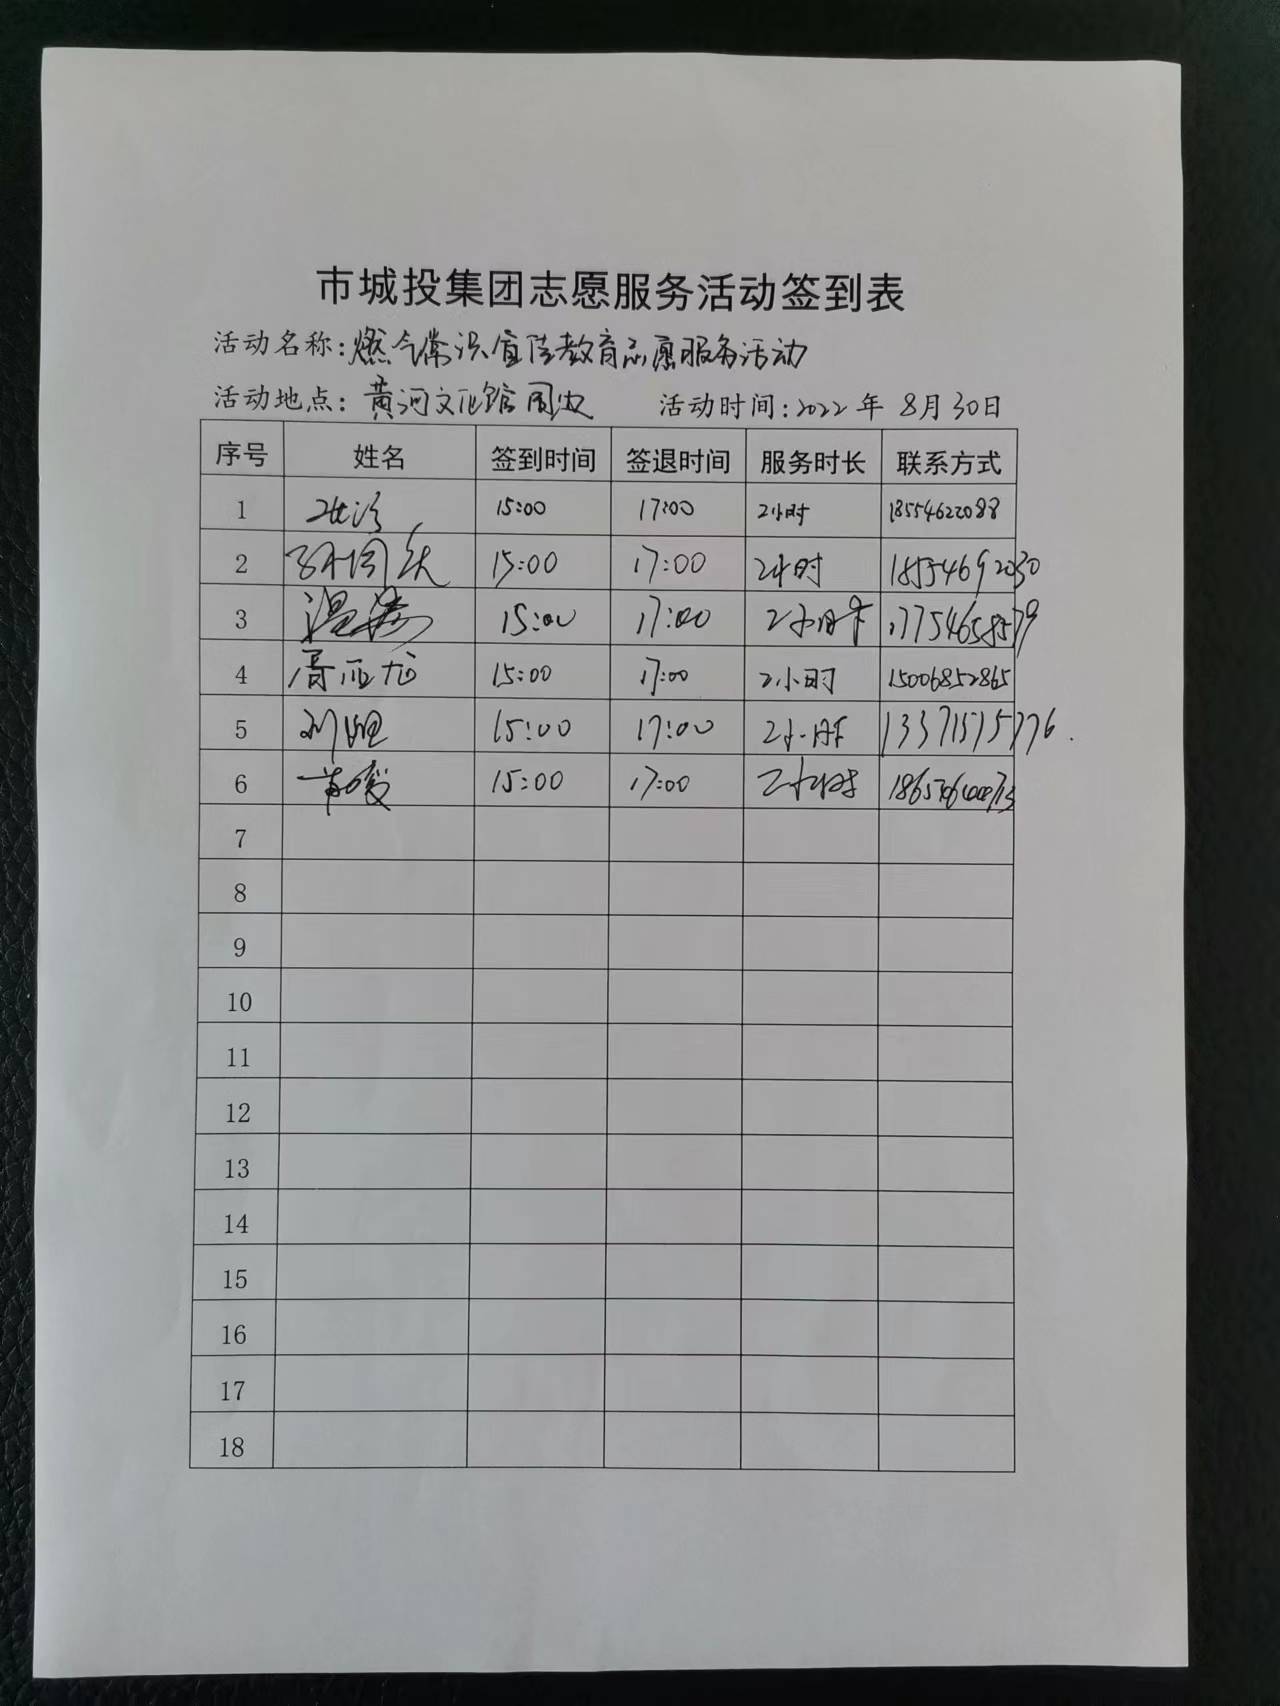 市城投集团志愿服务活动签到表
活动名称:燃气常识宣传教育志愿服务活动
活动地点:黄河文化馆周边 活动时间:2022年8月30日
序号 姓名 签到时间 签退时间 服务时长 联系方式
1 15:00 17:00 2小时 18554622088
2 15:00 17:00 2小时 18554692030
3 15:00 17:00 2小时 17754658579
4 15:00 17:00 2小时 15006852865
5 15:00 17:00 2小时 13371515776.
6 15:00 17:00 2小时
7
8
9
10
11
12
13
14
15
16
17
18